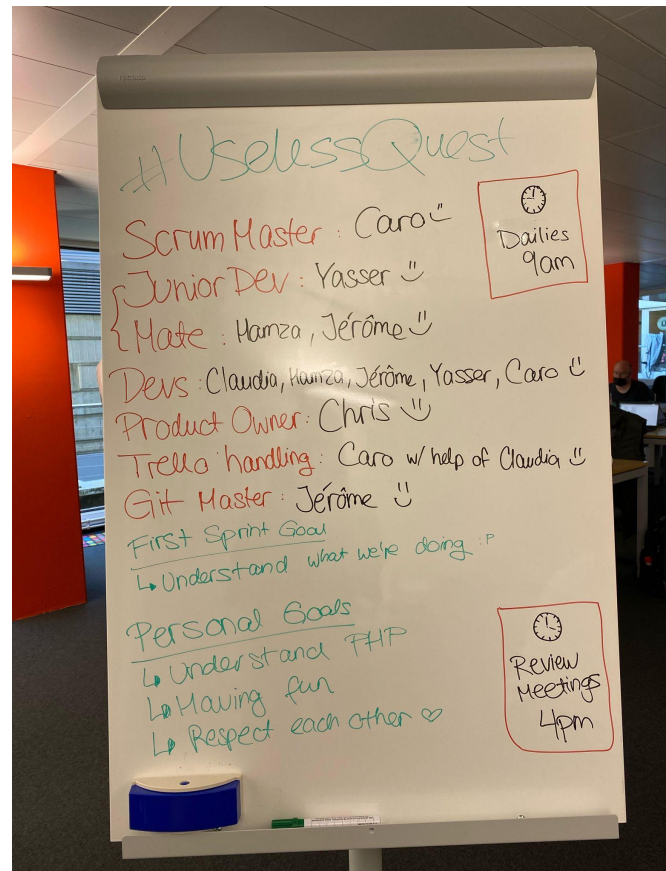 #UselessQuest
Scrum Master : Caro
Dailies
9am
Junior Dev : Yasser
Mate : Hamza, Jérôme
Devs : Claudia, Hamza, Jérôme, Yasser, Caro
Product Owner : Chris
Trello handling : Caro w/ help of Claudia
Git Master : Jérôme
First Sprint Goal
↳ Understand what we're doing :P
Personal Goals
↳ Understand PHP
↳ Having fun
↳ Respect each other ♡
Review
Meetings
4pm